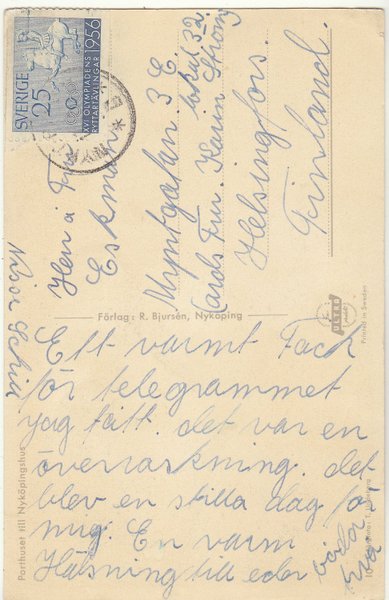 SVERIGE
25
XVI OLYMPIADENS
RYTTARTÄVLINGAR
1956
Herr å Fru
Eskman
Myntgatan 3 C.
Helsingfors.
Finland.
Förlag: R. Bjursén, Nyköping
ULTRA
Printed in Sweden
Porthuset till Nyköpingshus
Ett varmt Tack
för telegrammet
jag fått. det var en
överraskning. det
blev en stilla dag för
mig. En varm
Hälsning till eder
båda